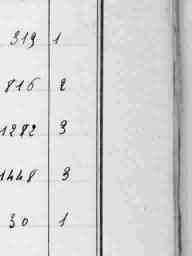 319 1
816 2
1282 3
1448 3
30 1